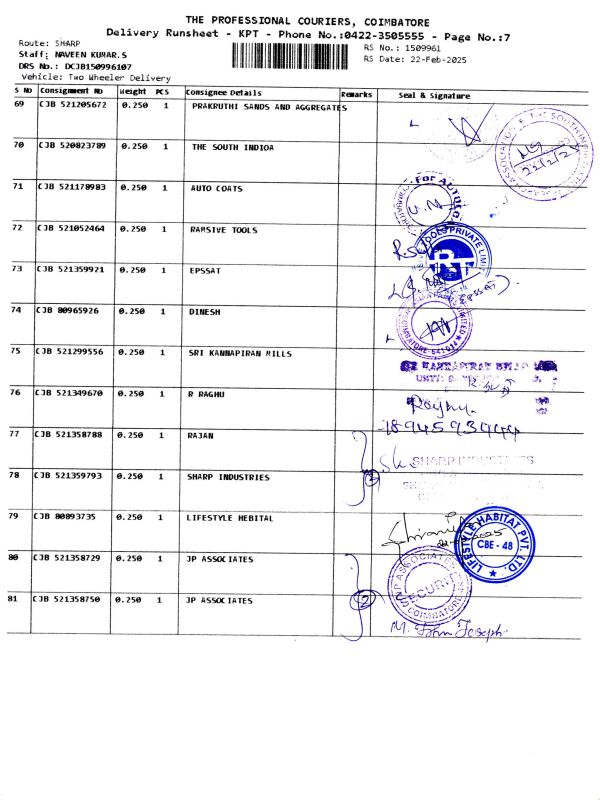 THE PROFESSIONAL COURIERS, COIMBATORE
Delivery Runsheet - KPT - Phone No.:0422-3505555 - Page No.:7
Route: SHARP
RS No : 1509961
Staff: NAVEEN KUMAR.S
RS Date: 22-Feb-2025
DRS No.: DCJB150996107
Vehicle: Two Wheeler Delivery
S No Consignment No Weight PCS Consignee Details Remarks Seal & Signature
69 CJB 521205672 0.250 1 PRAKRUTHI SANDS AND AGGREGATES
70 CJB 520823789 0.250 1 THE SOUTH INDIOA
71 CJB 521178983 0.250 1 AUTO COATS
72 CJB 521052464 0.250 1 RAMSIVE TOOLS
73 CJB 521359921 0.250 1 EPSSAT
74 CJB 80965926 0.250 1 DINESH
COIMBATORE-641014
75 CJB 521299556 0.250 1 SRI KANNAPIRAN MILLS
76 CJB 521349670 0.250 1 R RAGHU
Raghu.
77 CJB 521358788 0.250 1 RAJAN
78 CJB 521359793 0.250 1 SHARP INDUSTRIES
2
SHARP INDUSTRIES
79 CJB 80893735 0.250 1 LIFESTYLE HEBITAL
LIFESTYLE HABITAT PVT. LTD.
CBE - 48
80 CJB 521358729 0.250 1 JP ASSOCIATES
81 CJB 521358750 0.250 1 JP ASSOCIATES
2
M. John Joseph.